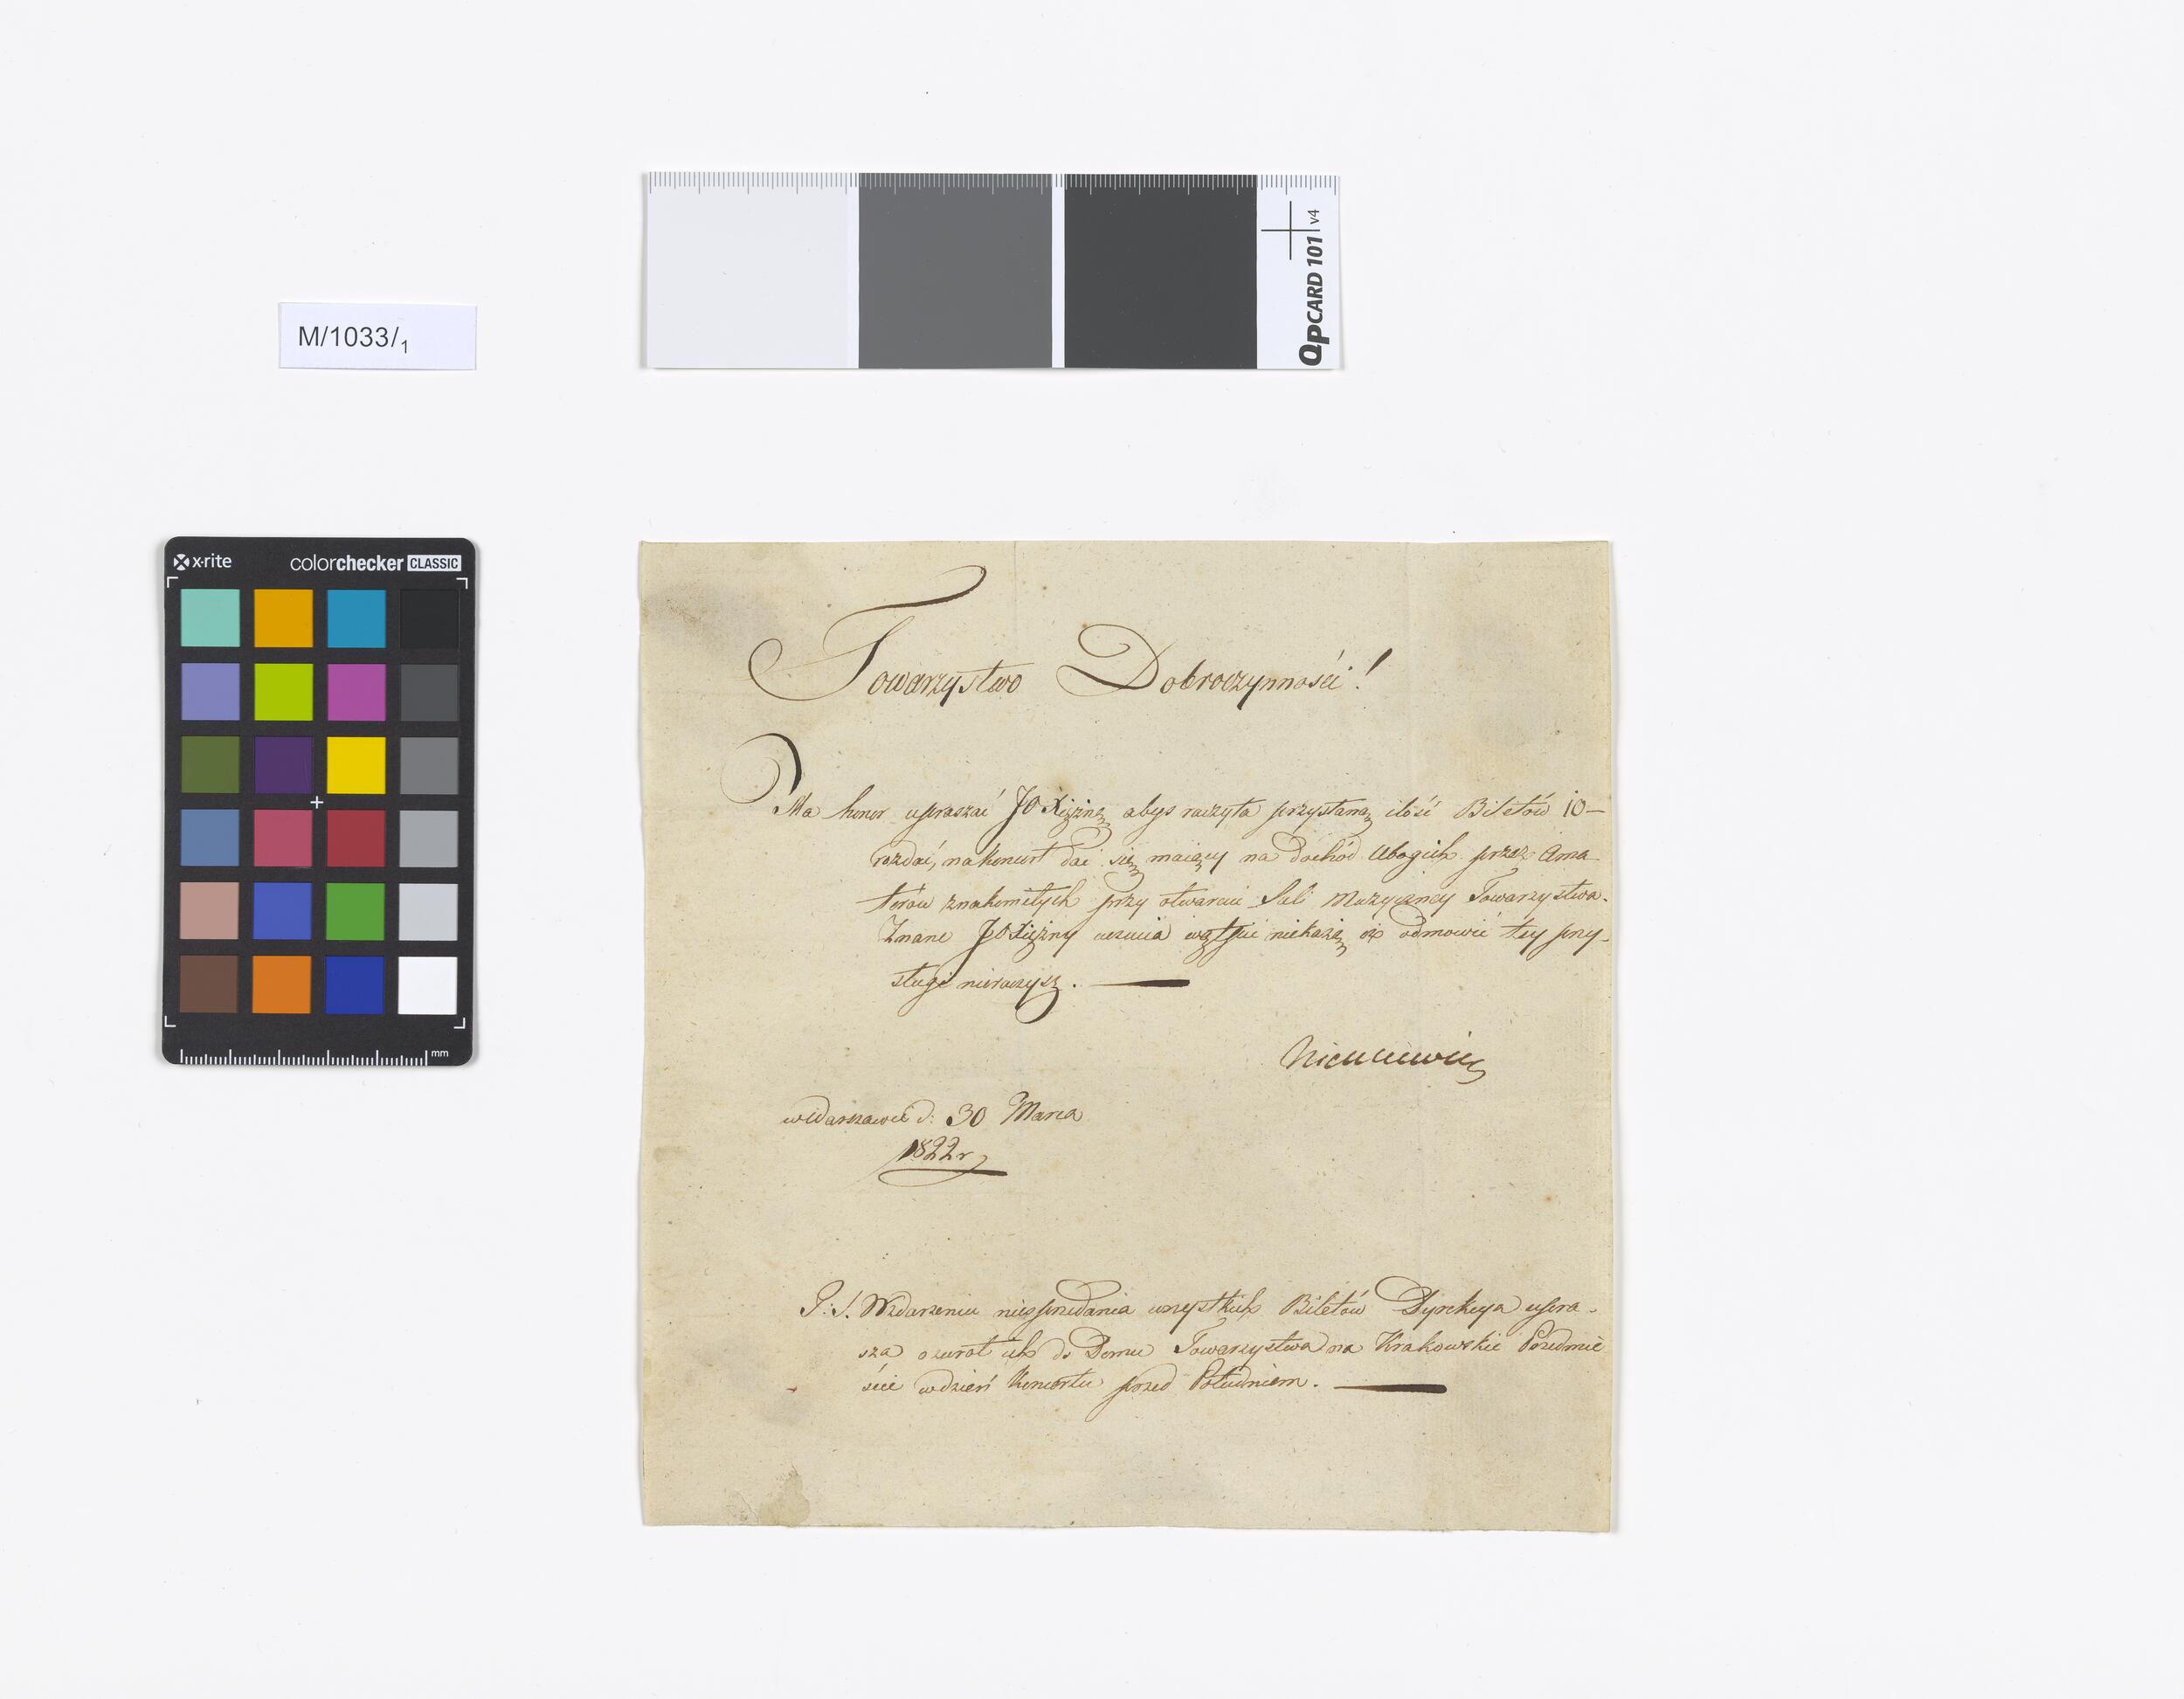 QPCARD 101 v4
M/1033/1
x·rite colorchecker CLASSIC
mm
Towarzystwo Dobroczynności!
Ma honor upraszać JO Xiężnę abyś raczyła przysłaną ilość Biletów 10–
rozdać, na koncert dać się maiący na dochód Ubogich przez Ama-
torów znakomitych przy otwarciu Sali Muzyczney Towarzystwa.
Znane JO Xiężny uczucia wątpić niekażą iż odmówić téy przy-
sługi nieraczysz.
Niemcewicz
w Warszawie d: 30 Marca
1822 r
P: S. W zdarzeniu niesprzedania wszystkich Biletów Dyrekcya upra-
sza o zwrót ich do Domu Towarzystwa na Krakowskie Przedmie
ście w dzień Koncertu przed Południem.